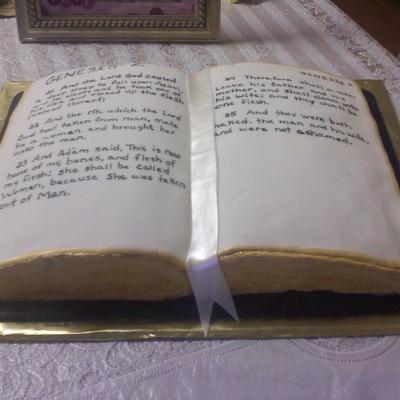 GENESIS
21 And the Lord God caused
a deep sleep to fall upon Adam,
and he slept and he took one of
his ribs and closed up the flesh
instead thereof;
22 And the rib which the Lord
God had taken from man, made
he a woman and brought her
unto the man.
23 And Adam said, This is now
bone of my bones, and flesh of
my flesh; she shall be called
Women, because She was taken
out of Man.
GENESIS
24 Therefore shall a man
Leave his father and his
mother, and shall cleave unto
his wife: and they shall be
one flesh.
25 And they were both
naked, the man and his wife,
and were not ashamed.